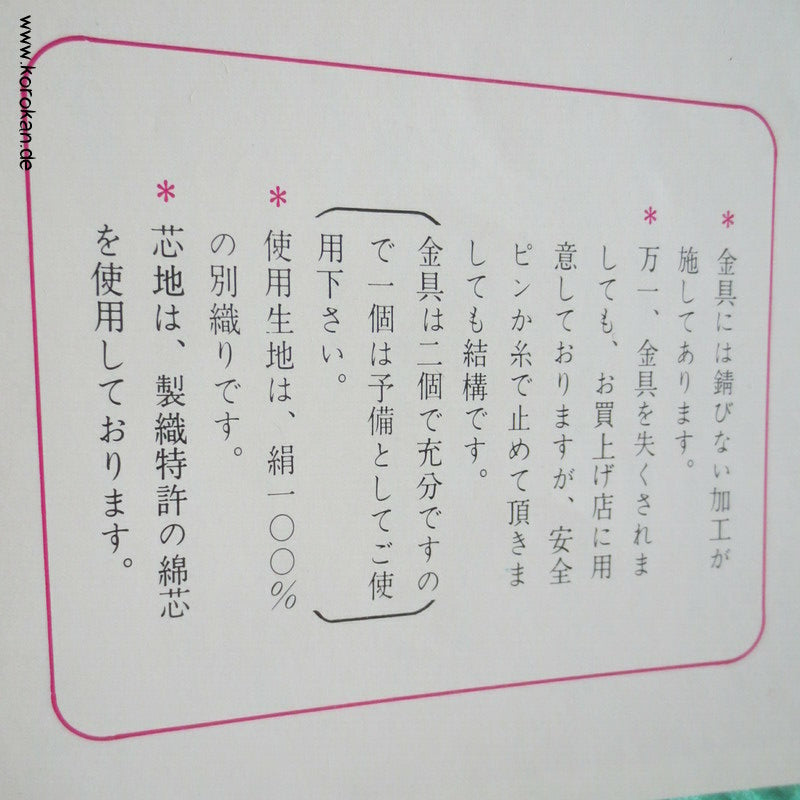 ＊金具には錆びない加工が
施してあります。
＊万一、金具を失くされま
しても、お買上げ店に用
意しておりますが、安全
ピンか糸で止めて頂きま
しても結構です。
金具は二個で充分ですの
で一個は予備としてご使
用下さい。
＊使用生地は、絹一〇〇％
の別織りです。
＊芯地は、製織特許の綿芯
を使用しております。
www.korokan.de